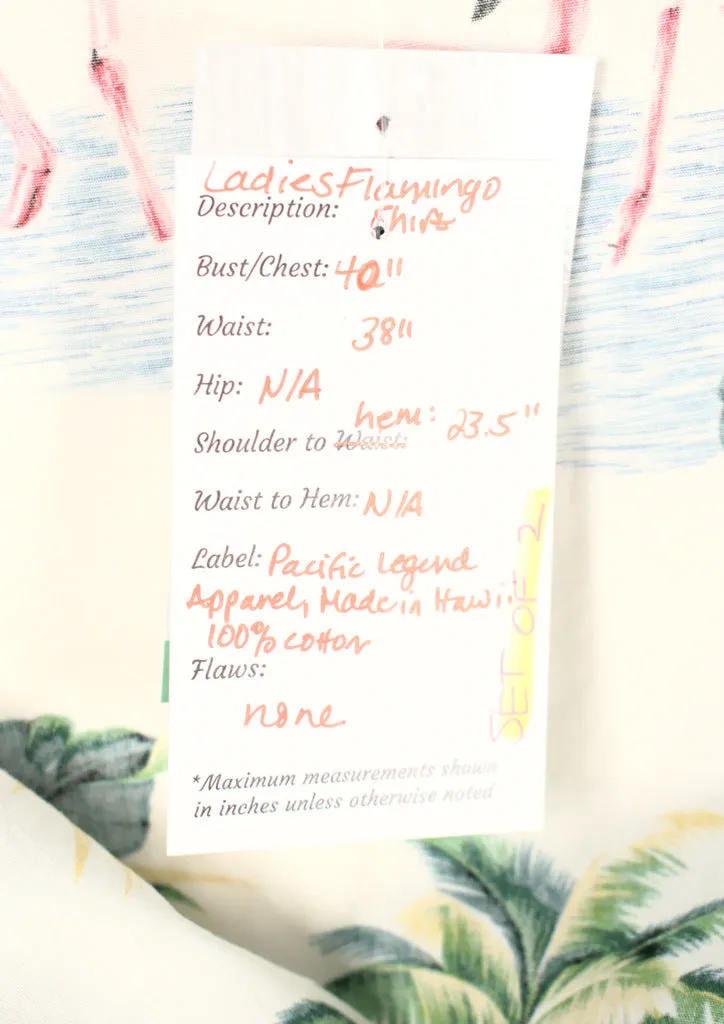 Ladies Flamingo
Description: Shirt
Bust/Chest: 40"
Waist: 38"
Hip: N/A
hem: 23.5"
Shoulder to Waist:
Waist to Hem: N/A
Label: Pacific Legend
Apparel, Made in Hawii
100% cotton
Flaws:
none
SET OF 2
*Maximum measurements shown
in inches unless otherwise noted